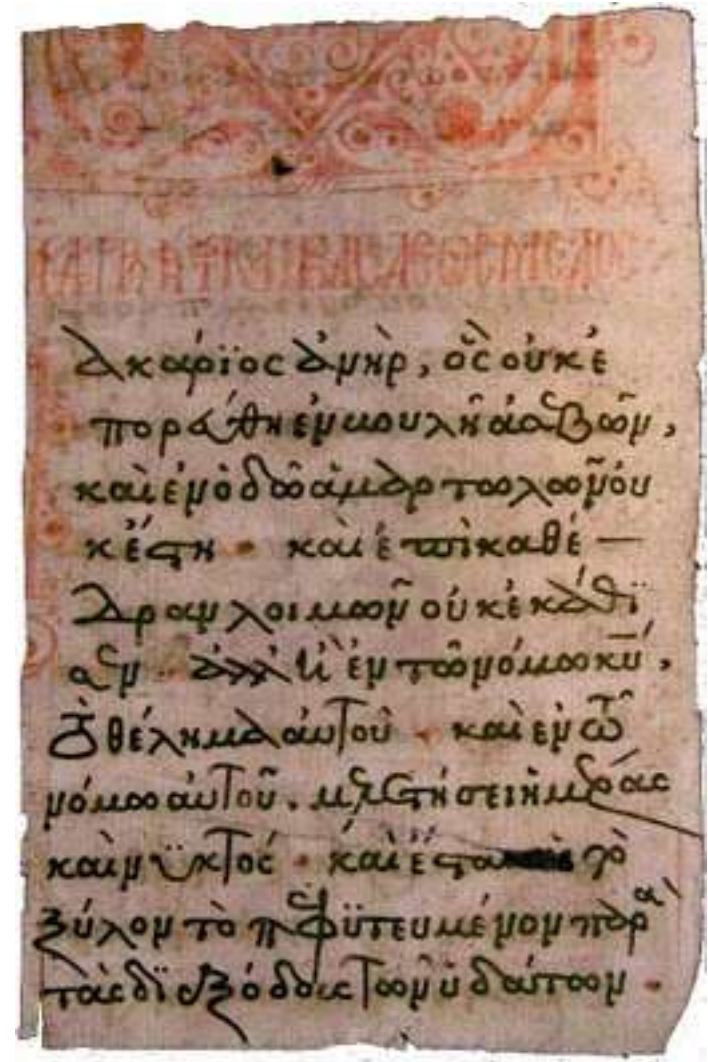 ακάρϊος ἀνὴρ, ὃς οὐκ ἐ
πορεύθη ἐν βουλῆ ἀσεβῶν,
καὶ ἐν ὁδῶ ἁμαρτωλῶν οὐ
κ ἔστη · καὶ ἐπὶ καθέ—
δραν λοιμῶν οὐκ ἐκάθϊ
σεν · ἀλλ' ἢ ἐν τῶ νόμω κ̅υ̅,
τὸ θέλημα αὐτοῦ · καὶ ἐν τῶ
νόμω αὐτοῦ. μελετήσει ἡμέρας
καὶ νϋκτός · καὶ ἔσται τὸ
ξύλον τὸ πεφϋτευμένον παρὰ
τὰς δϊεξόδους τῶν ὑδάτων ·